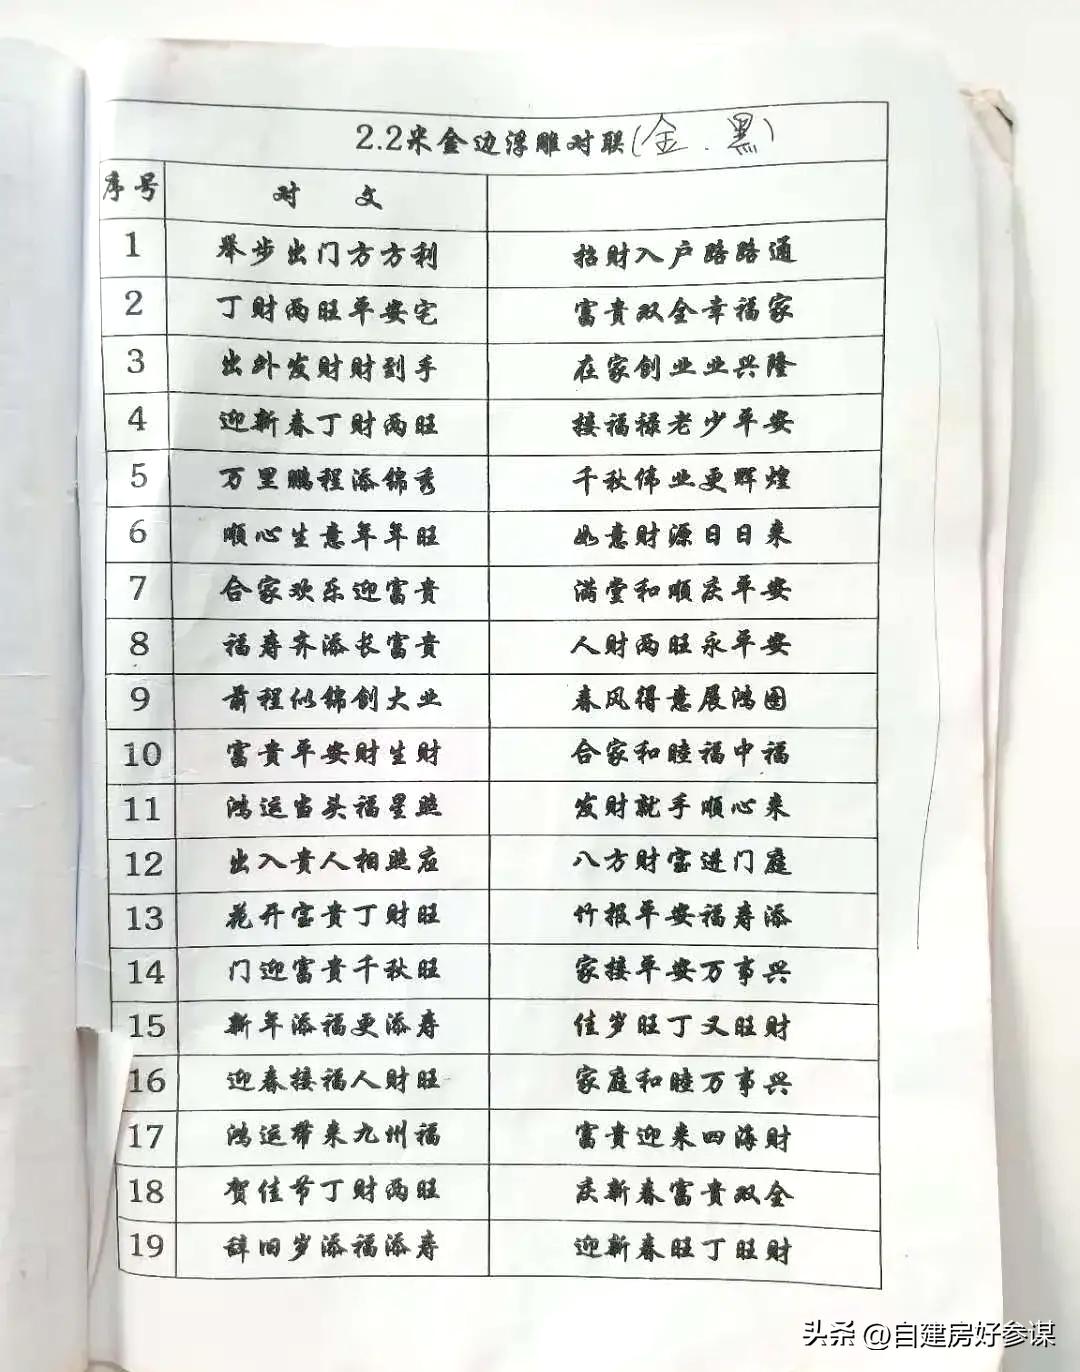 2.2米金边浮雕对联(金.黑)
序号 对 文
1 举步出门方方利 招财入户路路通
2 丁财两旺平安宅 富贵双全幸福家
3 出外发财财到手 在家创业业兴隆
4 迎新春丁财两旺 接福禄老少平安
5 万里鹏程添锦秀 千秋伟业更辉煌
6 顺心生意年年旺 如意财源日日来
7 合家欢乐迎富贵 满堂和顺庆平安
8 福寿齐添长富贵 人财两旺永平安
9 前程似锦创大业 春风得意展鸿图
10 富贵平安财生财 合家和睦福中福
11 鸿运当头福星照 发财就手顺心来
12 出入贵人相照应 八方财宝进门庭
13 花开富贵丁财旺 竹报平安福寿添
14 门迎富贵千秋旺 家接平安万事兴
15 新年添福更添寿 佳岁旺丁又旺财
16 迎春接福人财旺 家庭和睦万事兴
17 鸿运带来九州福 富贵迎来四海财
18 贺佳节丁财两旺 庆新春富贵双全
19 辞旧岁添福添寿 迎新春旺丁旺财
头条 @自建房好参谋